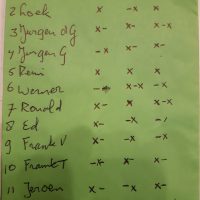 2 Loek x -x x
3 Jurgen dG x- x- x-
4 Jurgen G x- -x x-
5 Remi x x x
6 Werner - x-x -x
7 Ronald x- -x x-x
8 Ed -x x- x-
9 Frank V x- -x x-
10 Frank T -x x- -x
11 Jeroen x- -x x-